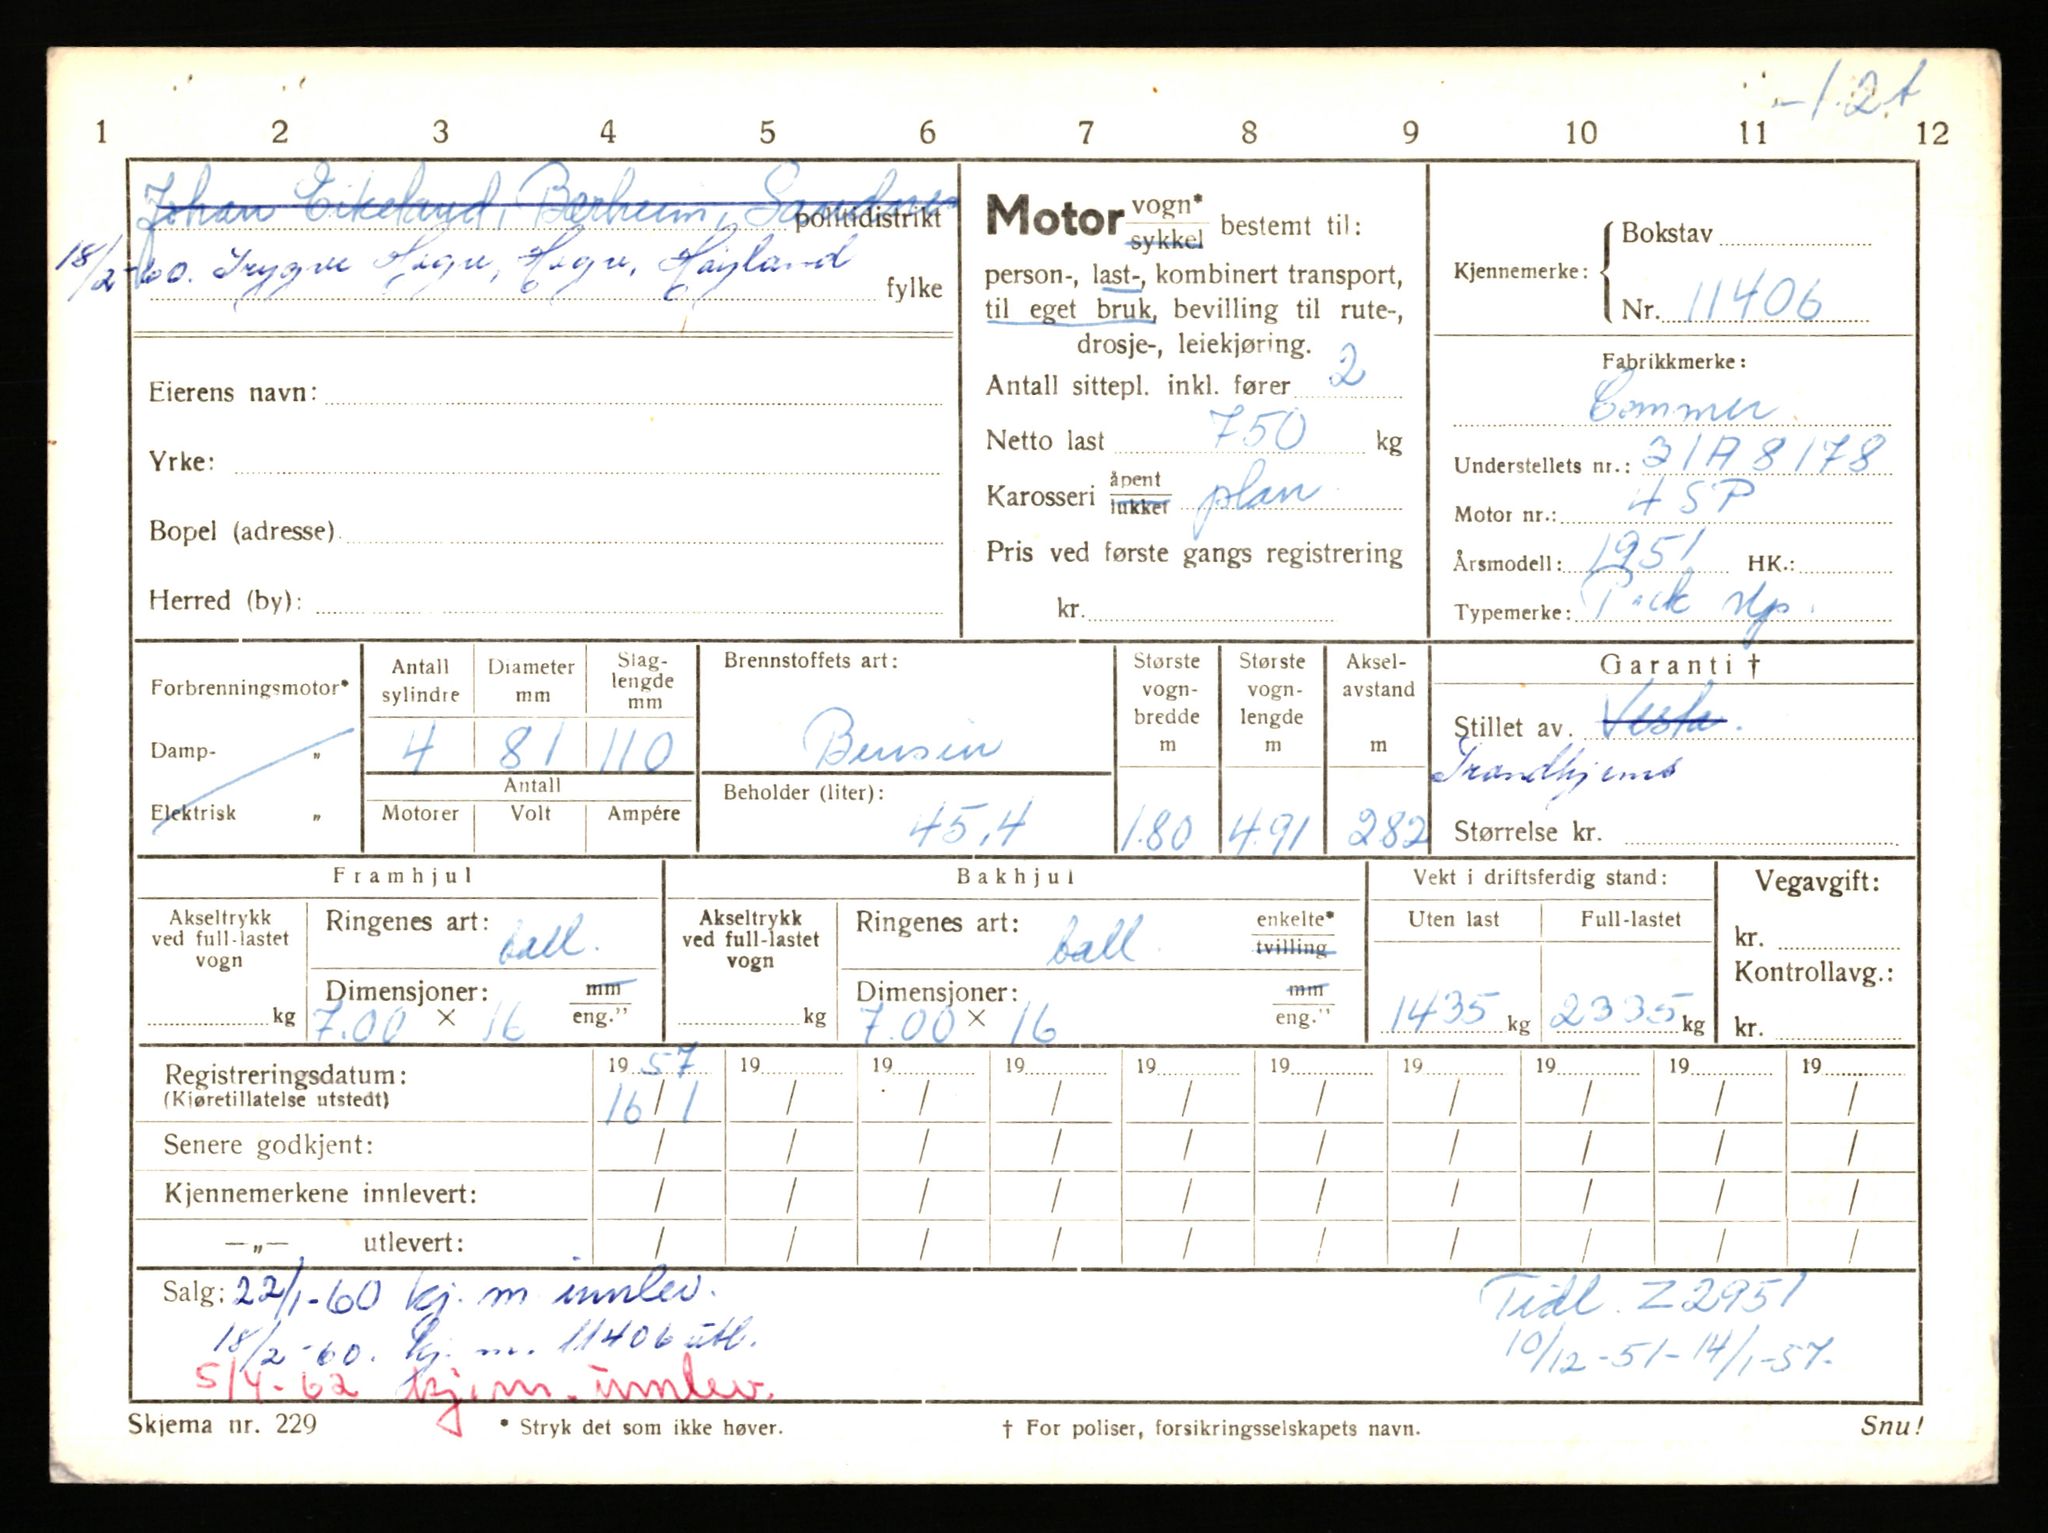 -1.2t
1 2 3 4 5 6 7 8 9 10 11 12
Johan Eikeland, Berheim, Sandnes
politidistrikt
18/2-60. Trygve Hogn, Hogn, Høyland
fylke
Eierens navn:
Yrke:
Bopel (adresse)
Herred (by):
Motor vogn* sykkel bestemt til:
person-, last-, kombinert transport,
til eget bruk, bevilling til rute-,
drosje-, leiekjøring.
Antall sittepl. inkl. fører 2
Netto last 750 kg
Karosseri åpent lukket plan
Pris ved første gangs registrering
kr.
Kjennemerke: Bokstav
Nr. 11406
Fabrikkmerke:
Commer.
Understellets nr.: 31A8178
Motor nr.: 4 SP
Årsmodell: 1951 HK.:
Typemerke: Pick up.
Forbrenningsmotor*
Damp- „
Elektrisk „
Antall sylindre
Diameter mm
Slag-lengde mm
4 81 110
Antall
Motorer Volt Ampére
Brennstoffets art:
Bensin
Beholder (liter):
45,4
Største vogn-bredde m
1.80
Største vogn-lengde m
4.91
Aksel-avstand m
282
Garanti †
Stillet av. Vesta.
Trondhjems
Størrelse kr.
Framhjul
Akseltrykk ved full-lastet vogn
kg
Ringenes art: ball.
Dimensjoner: mm eng."
7.00 × 16
Bakhjul
Akseltrykk ved full-lastet vogn
kg
Ringenes art: ball. enkelte* tvilling
Dimensjoner: mm eng."
7.00 × 16
Vekt i driftsferdig stand:
Uten last Full-lastet
1435 kg 2335 kg
Vegavgift:
kr.
Kontrollavg.:
kr.
Registreringsdatum: 19 57 19 19 19 19 19 19 19 19 19
(Kjøretillatelse utstedt) 16/1 / / / / / / / / /
Senere godkjent: / / / / / / / / / /
Kjennemerkene innlevert: / / / / / / / / / /
—„— utlevert: / / / / / / / / / /
Salg: 22/1-60 kj. m. innlev.
18/2-60. kj. m. 11406 utl.
5/4-62 kjem. innlev.
Tidl. Z2951
10/12-51-14/1-57-
Skjema nr. 229
* Stryk det som ikke høver.
† For poliser, forsikringsselskapets navn.
Snu!